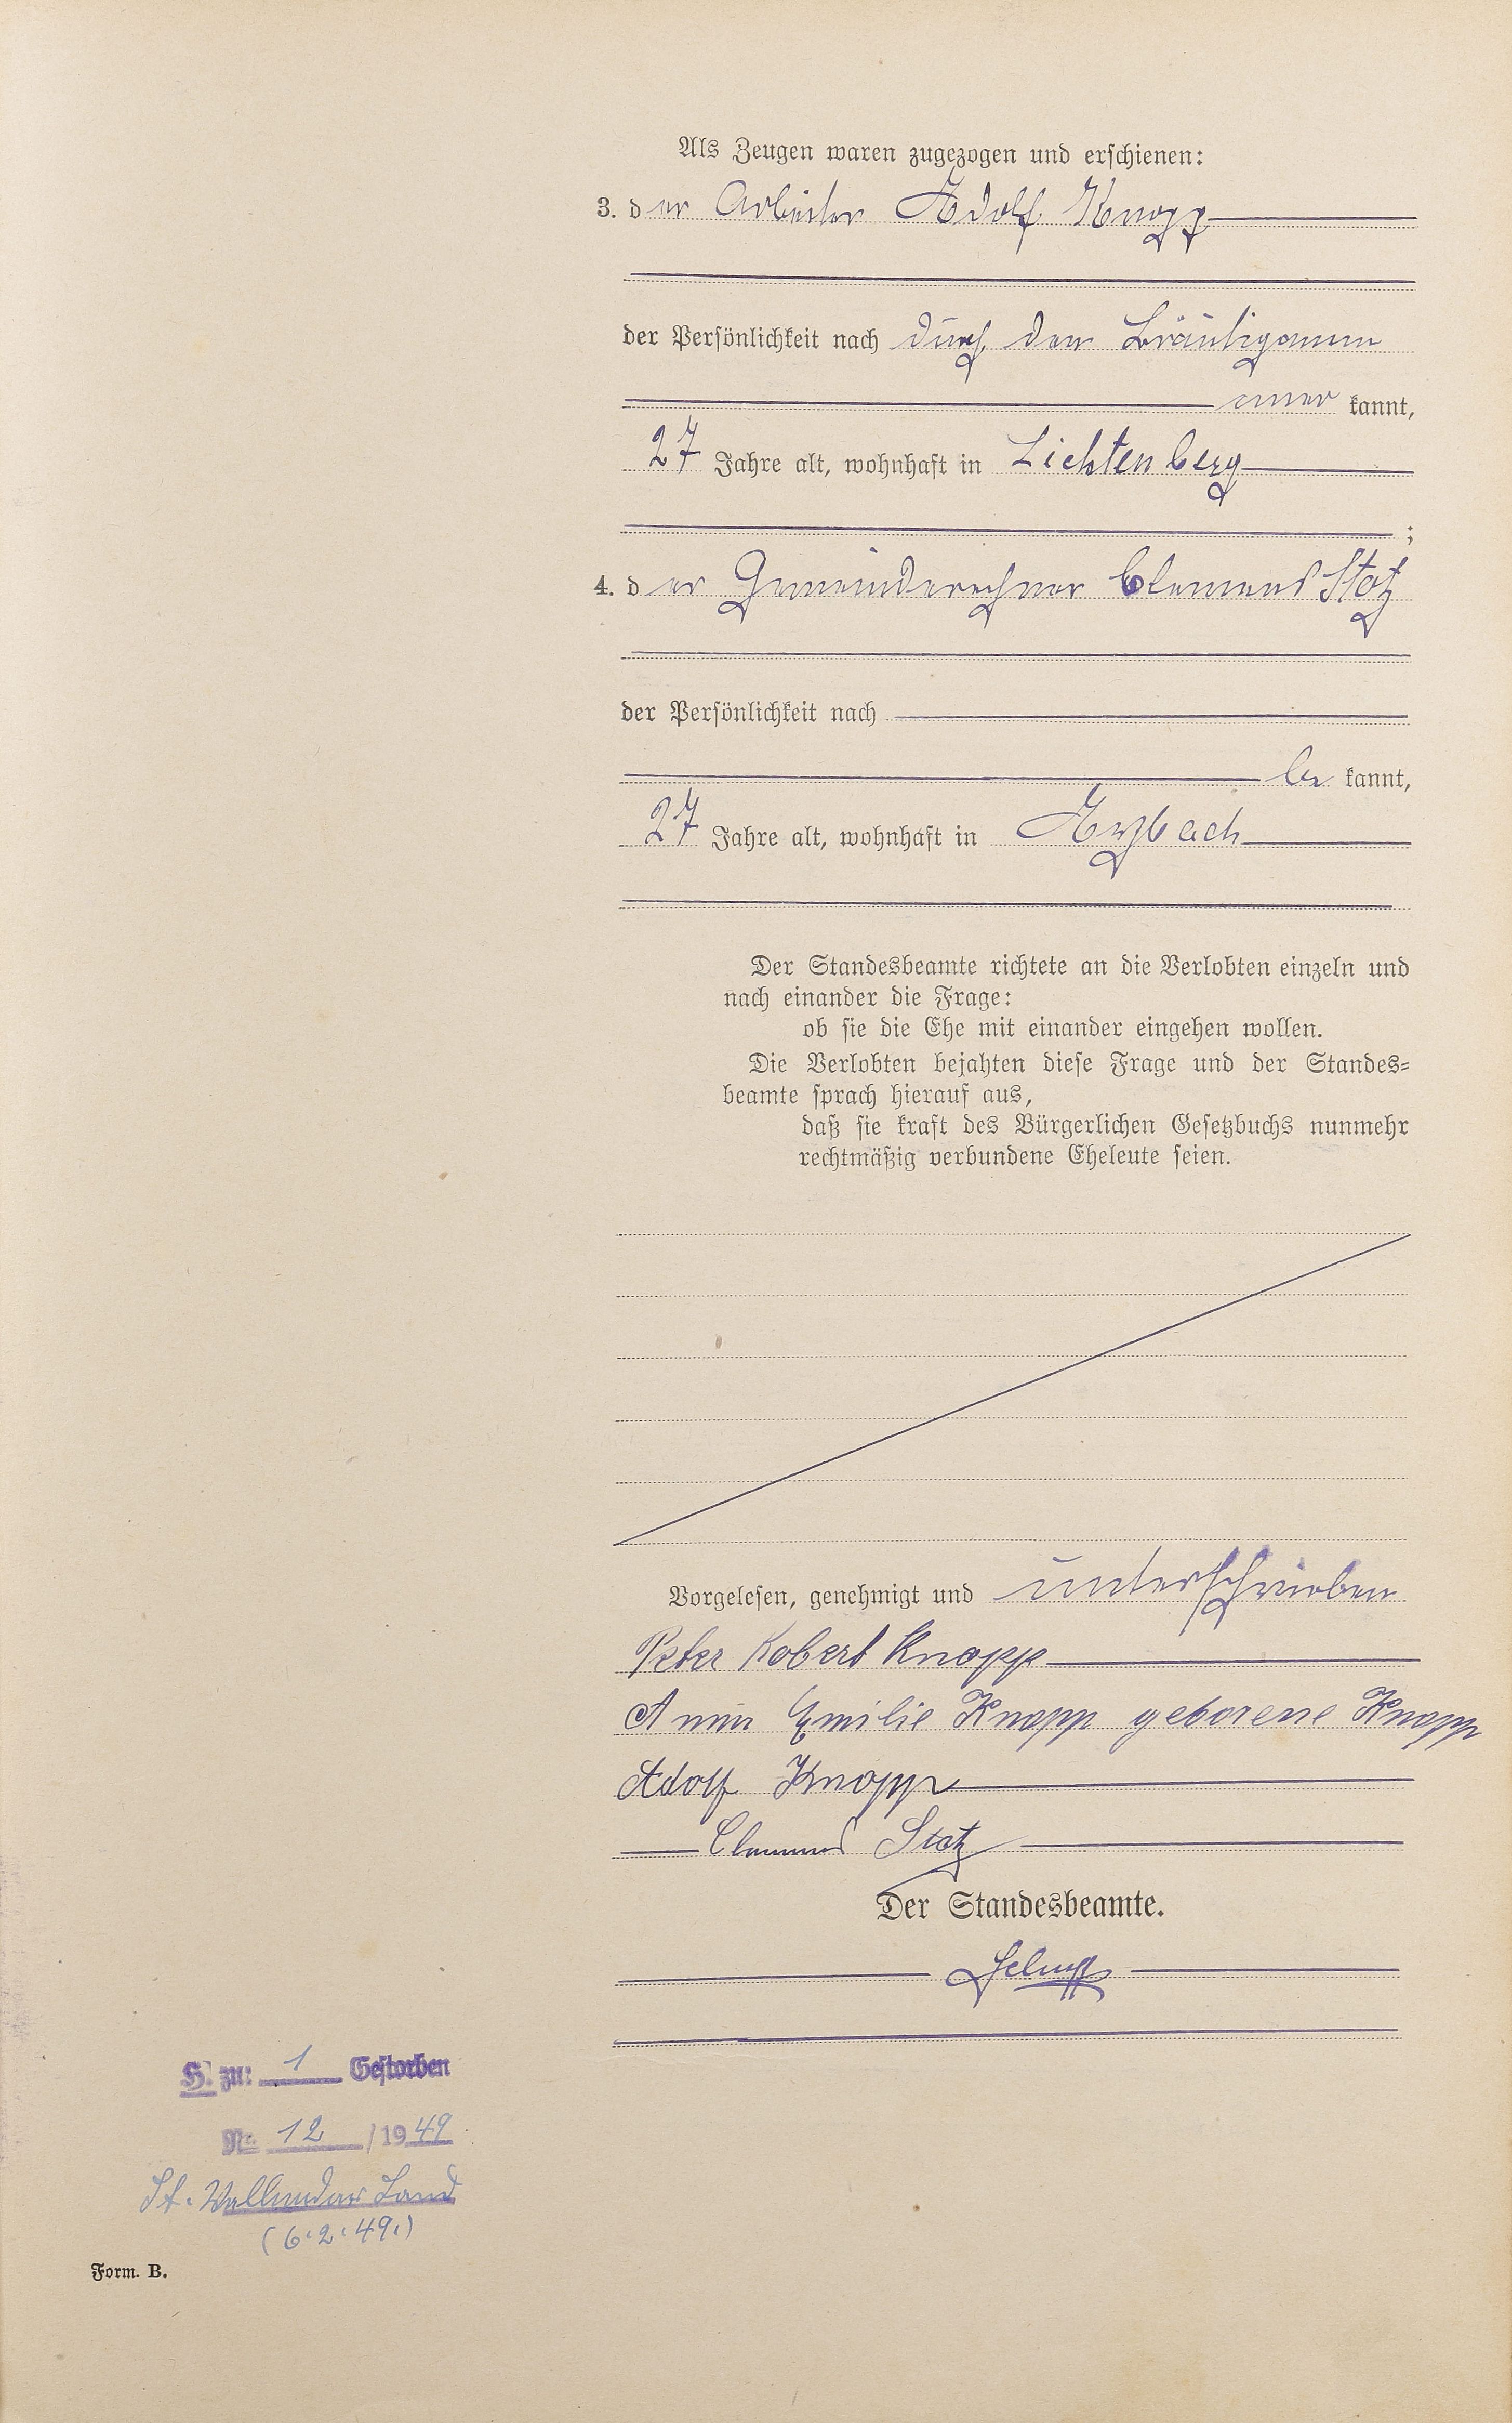 Als Zeugen waren zugezogen und erschienen:
3. der Arbeiter Adolf Knopp
der Persönlichkeit nach durch den Bräutigamm
aner kannt,
27 Jahre alt, wohnhaft in Lichtenberg
;
4. der Gemeinderechner Clemens Stotz
der Persönlichkeit nach
be kannt,
27 Jahre alt, wohnhaft in
Der Standesbeamte richtete an die Verlobten einzeln und
nach einander die Frage:
ob sie die Ehe mit einander eingehen wollen.
Die Verlobten bejahten diese Frage und der Standes-
beamte sprach hierauf aus,
daß sie kraft des Bürgerlichen Gesetzbuchs nunmehr
rechtmäßig verbundene Eheleute seien.
Vorgelesen, genehmigt und unterschrieben
Peter Robert Knopp
Emilie Knopp geborene Knopp
Adolf Knopp
Clemens Stotz
Der Standesbeamte.
H. zu: 1 Gestorben
Nr. 12 /1949
St. Vallendar Land
(6.2.49.)
Form. B.